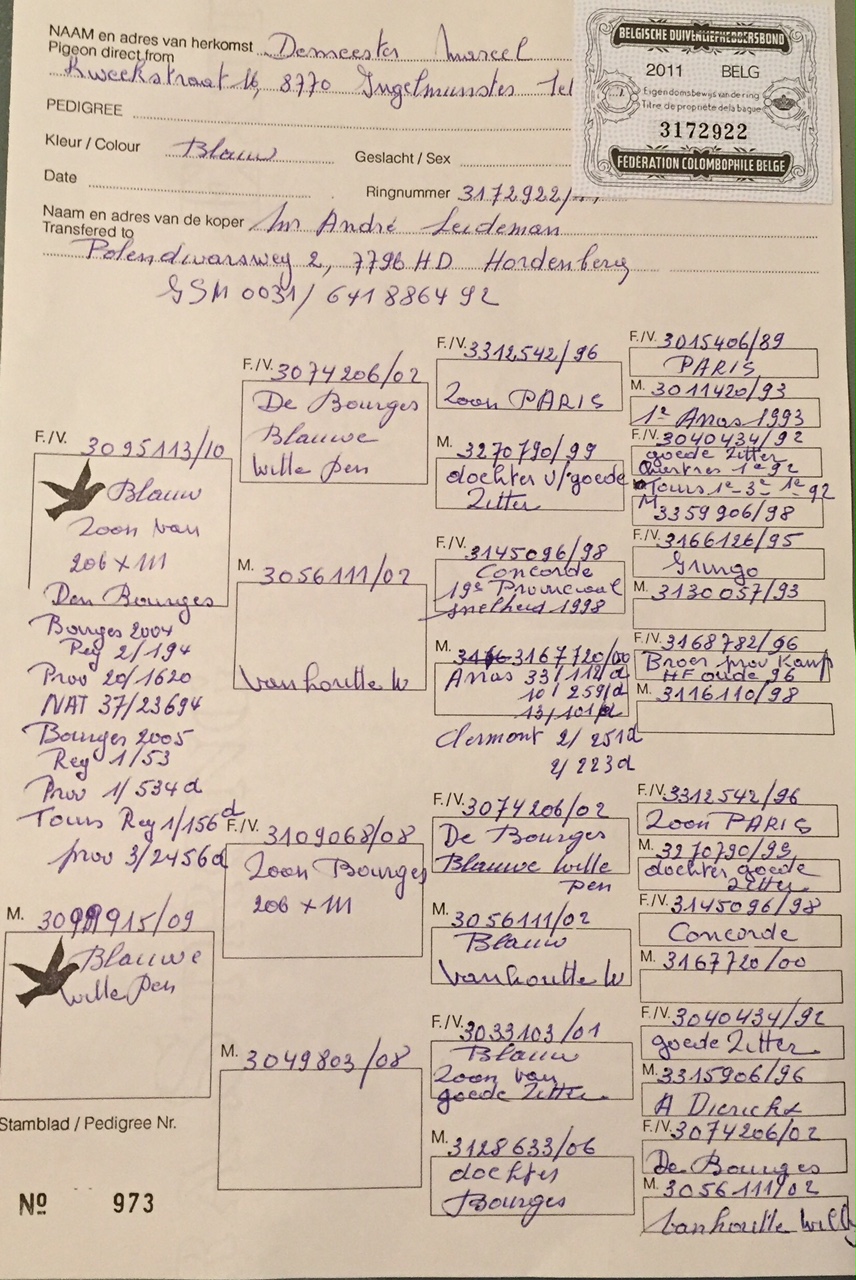 NAAM en adres van herkomst Demeester Marcel
Pigeon direct from
Kweekstraat 16, 8770 Ingelmunster Tel
PEDIGREE
Kleur / Colour Blauw
Geslacht / Sex
Date
Ringnummer 3172922/11
Naam en adres van de koper Mr André Leideman
Transfered to
Polendwarsweg 2, 7796 HD Hardenberg
GSM 0031/ 641886492
BELGISCHE DUIVENLIEFHEBBERSBOND
2011 BELG
Eigendomsbewijs van der ring
Titre de propriété de la bague
3172922
FEDERATION COLOMBOPHILE BELGE
F./V. 3095113/10
Blauw
Zoon van
206 x 111
Den Bourges
Bourges 2004
Reg 2/194
Prov 20/1620
NAT 37/23694
Bourges 2005
Reg 1/53
Prov 1/534 d
Tours Reg 1/156 d
prov 3/2456d
M. 3099915/09
Blauwe
witte pen
F./V. 3074206/02
De Bourges
Blauwe
witte pen
M. 3056111/02
Vanhoutte W
F./V. 3109068/08
Zoon Bourges
206 x 111
M. 3049803/08
F./V. 3312542/96
Zoon PARIS
M. 3270790/99
dochter v/goede
Zitter
F./V. 3145096/98
Concorde
19e Provinciaal
snelheid 1998
M. 3167720/00
Arras 33/112d
10/259/d
13/101/d
Clermont 2/251d
2/223d
F./V. 3074206/02
De Bourges
Blauwe witte
pen
M. 3056111/02
Blauw
Vanhoutte W
F./V. 3033103/01
Blauw
Zoon van
goede Zitter
M. 3128633/06
dochter
Bourges
F./V. 3015406/89
PARIS
M. 3011420/93
1e Arras 1993
F./V. 3040434/92
goede Zitter
Quievres 1e 92
Tours 1e-3e 1e 92
M 3359906/98
F./V. 3166126/95
Gringo
M. 3130057/93
F./V. 3168782/96
Broer prov Kamp
HF oude 96
M. 3116110/98
F./V. 3312542/96
Zoon PARIS
M. 3270790/99
dochter goede
Zitter
F./V. 3145096/98
Concorde
M. 3167720/00
F./V. 3040434/92
goede Zitter
M. 3315906/96
A Dierickx
F./V. 3074206/02
De Bourges
M. 3056111/02
Vanhoutte Willy
Stamblad / Pedigree Nr.
Nº 973